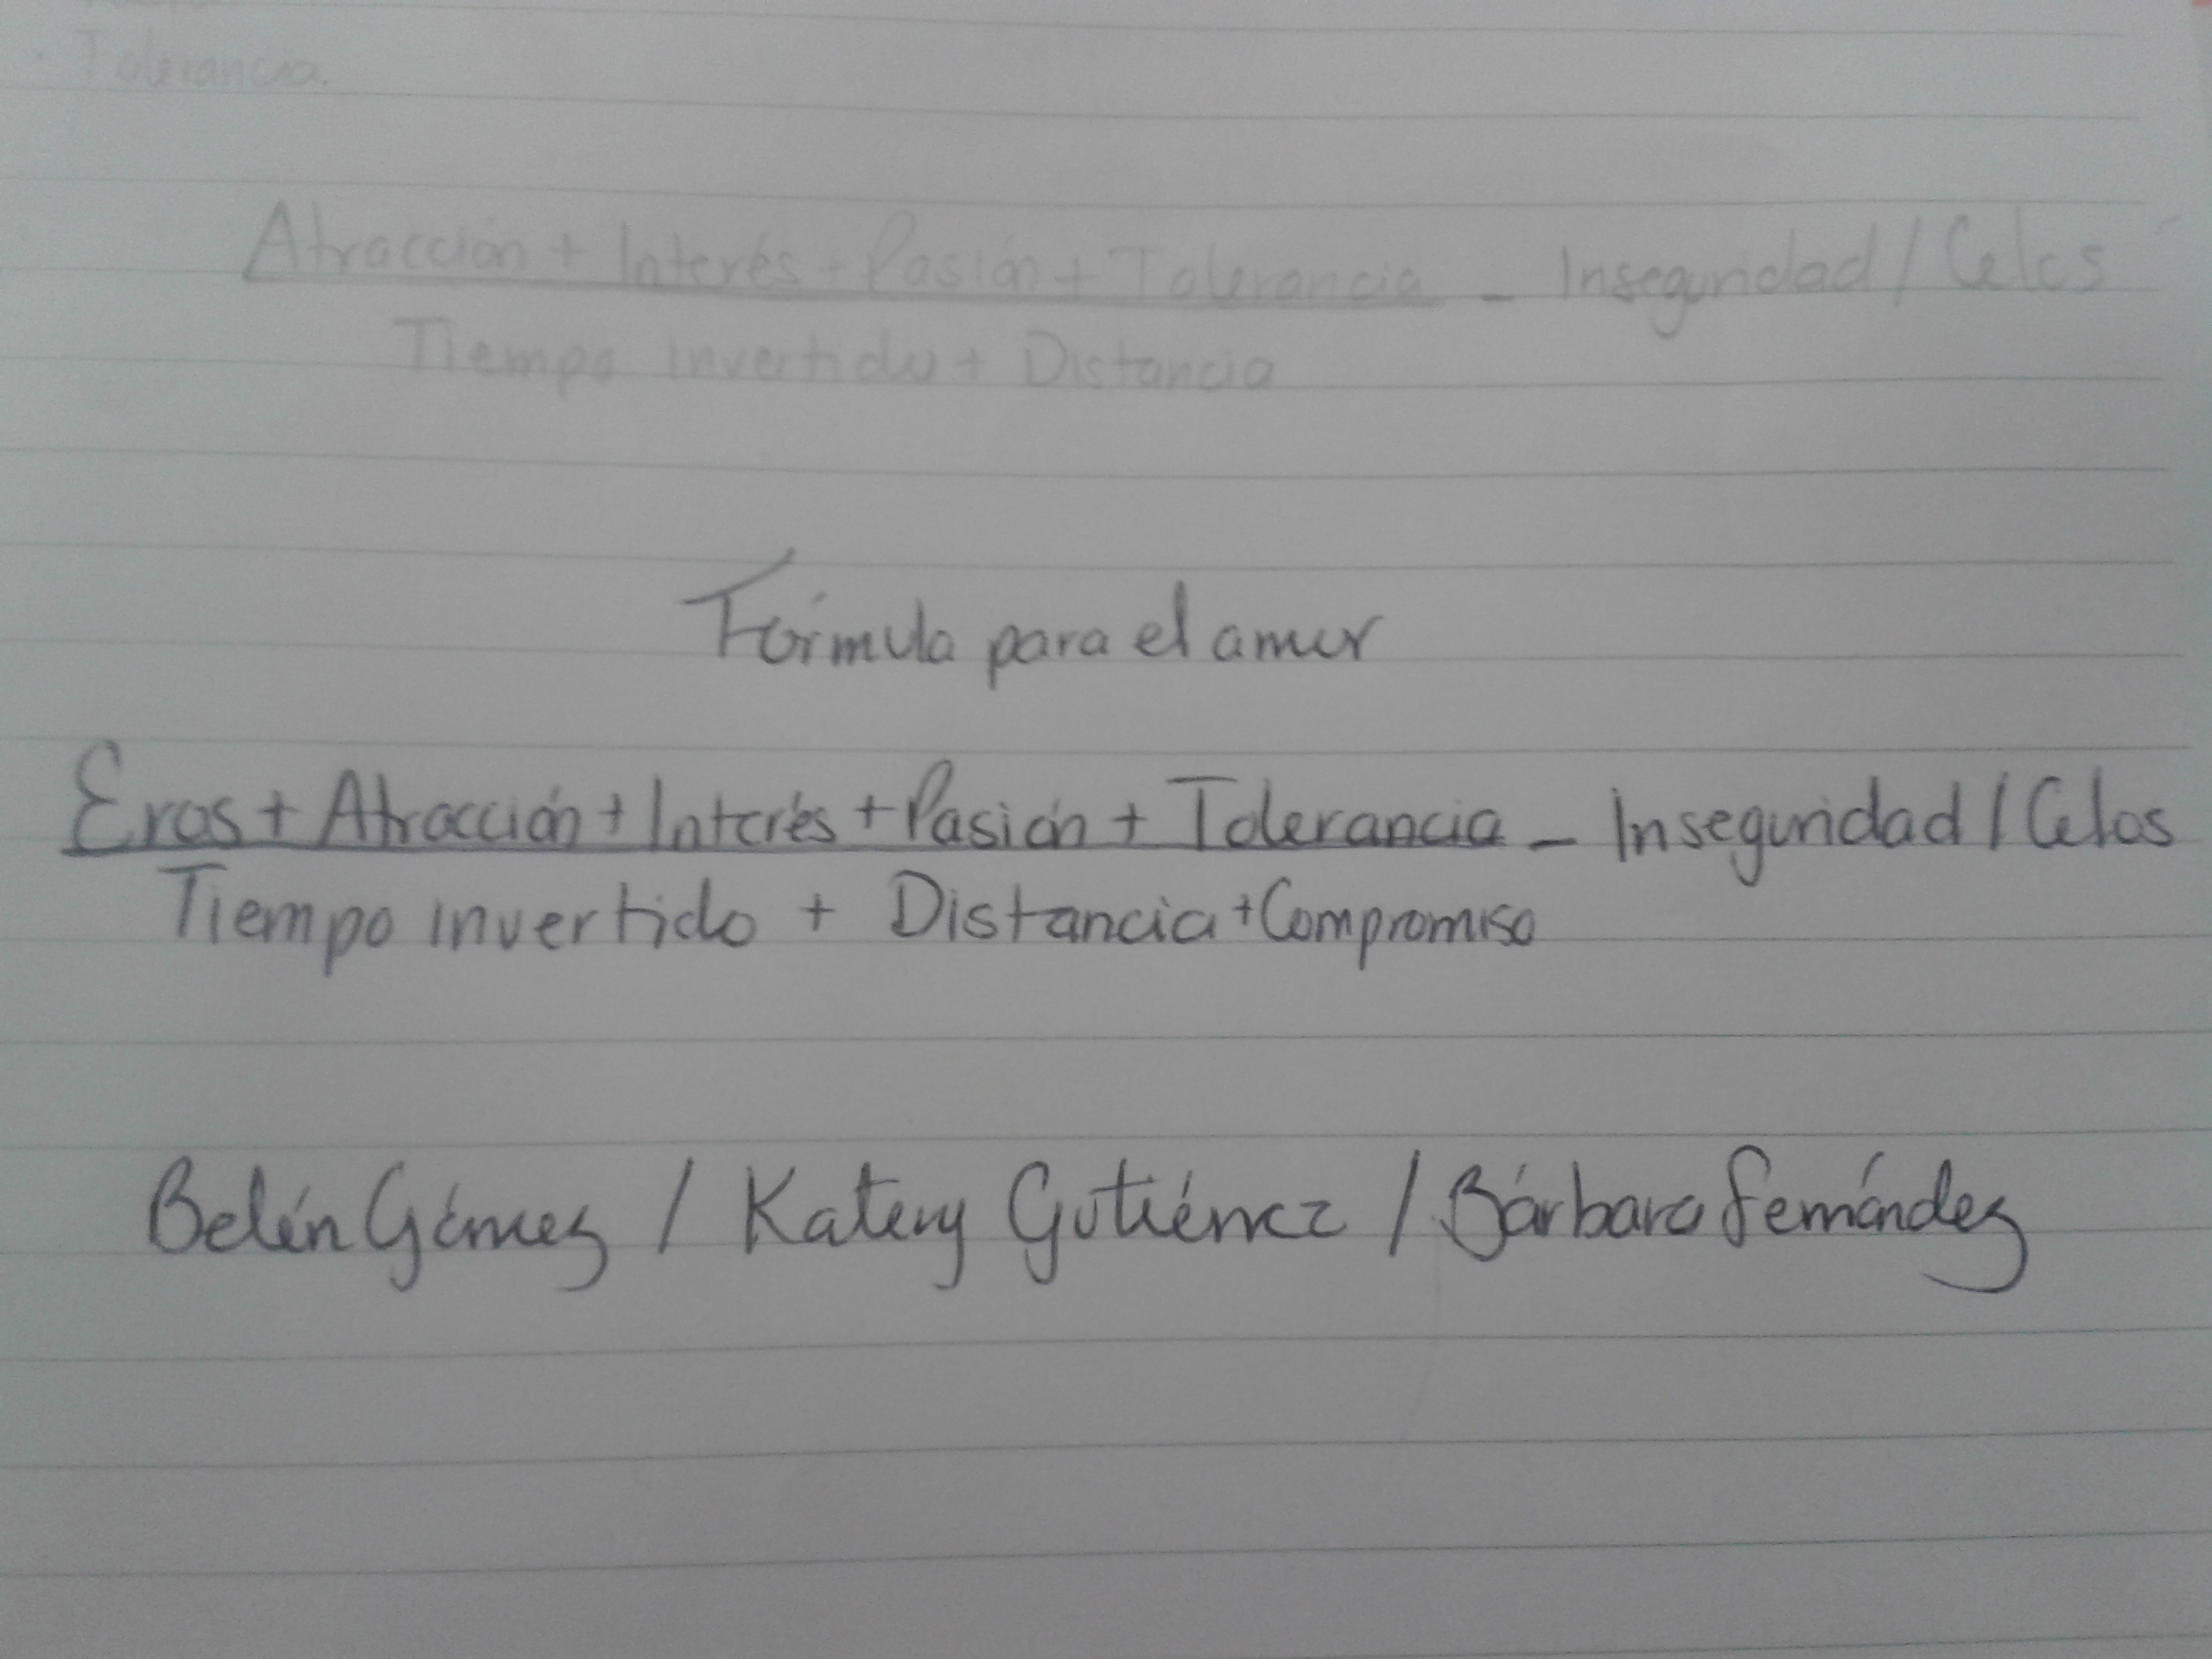 · Tolerancia.
Atracción + Interés + Pasión + Tolerancia - Inseguridad / Celos
Tiempo invertido + Distancia
Fórmula para el amor
Eros + Atracción + Interés + Pasión + Tolerancia - Inseguridad / Celos
Tiempo invertido + Distancia + Compromiso
Belén Gómez / Katery Gutiérrez / Bárbara Fernández